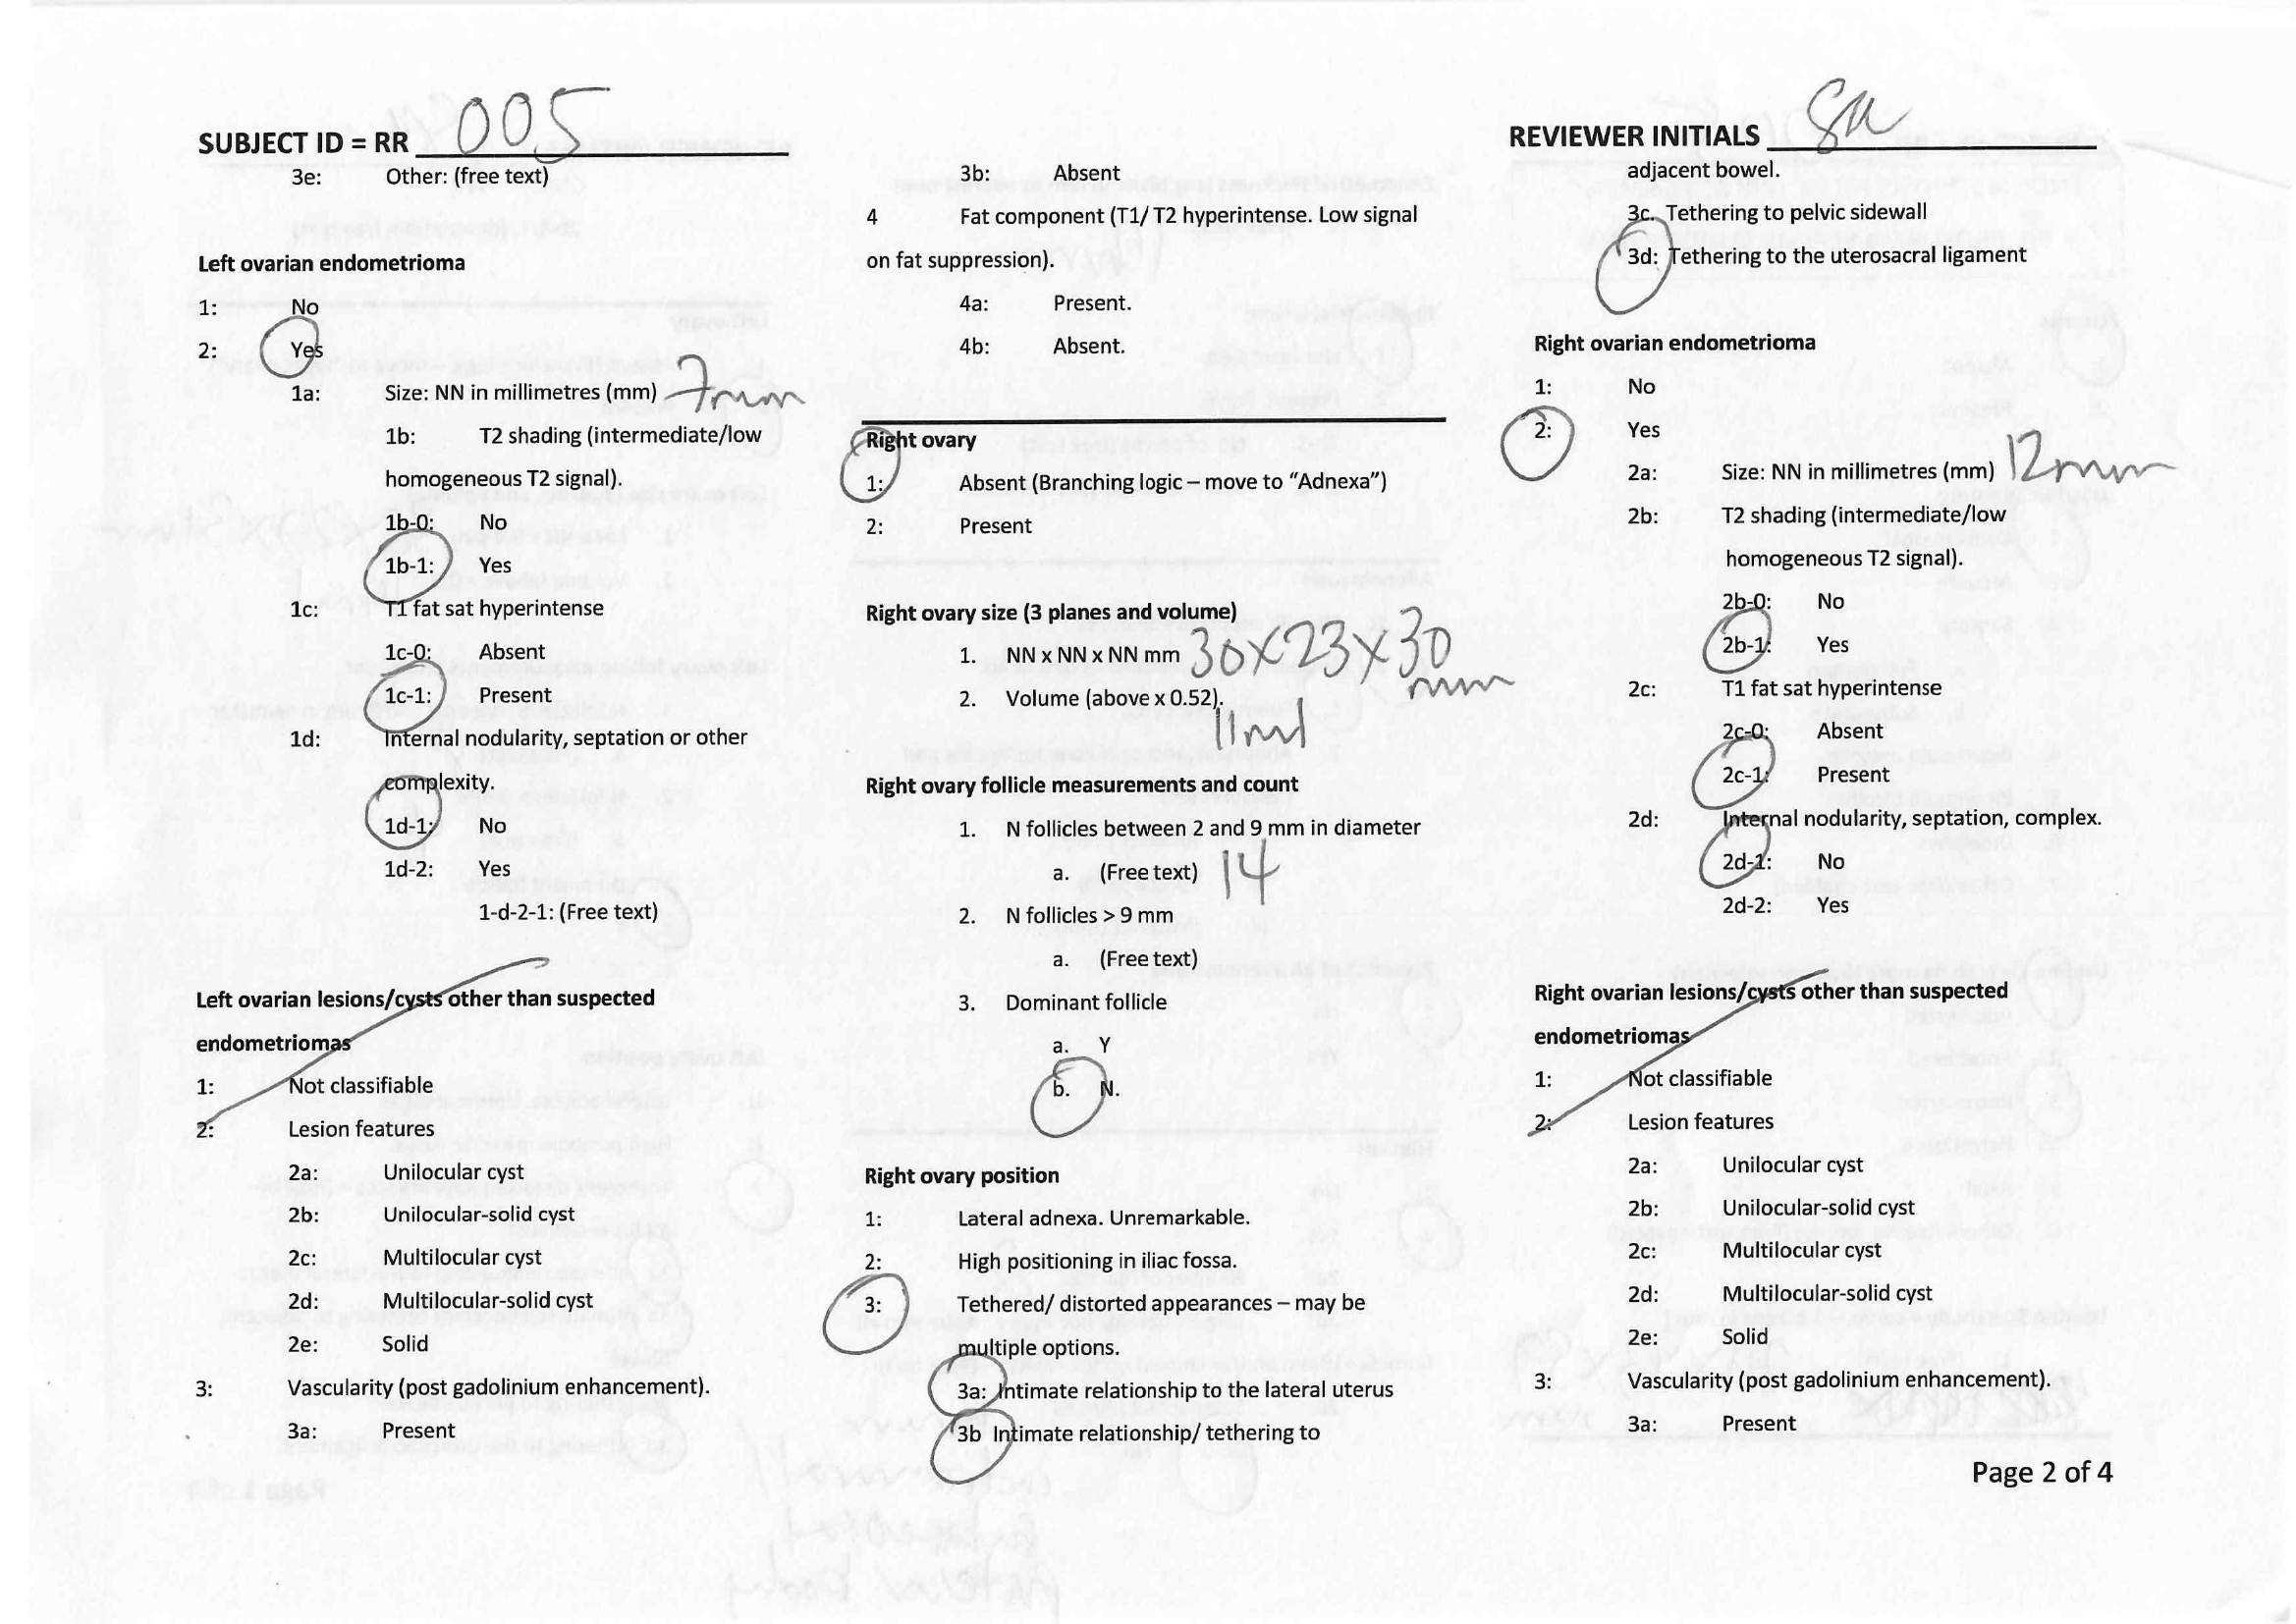 SUBJECT ID = RR 005
3e: Other: (free text)
Left ovarian endometrioma
1: No
2: Yes
1a: Size: NN in millimetres (mm) 7mm
1b: T2 shading (intermediate/low
homogeneous T2 signal).
1b-0: No
1b-1: Yes
1c: T1 fat sat hyperintense
1c-0: Absent
1c-1: Present
1d: Internal nodularity, septation or other
complexity.
1d-1: No
1d-2: Yes
1-d-2-1: (Free text)
Left ovarian lesions/cysts other than suspected
endometriomas
1: Not classifiable
2: Lesion features
2a: Unilocular cyst
2b: Unilocular-solid cyst
2c: Multilocular cyst
2d: Multilocular-solid cyst
2e: Solid
3: Vascularity (post gadolinium enhancement).
3a: Present
3b: Absent
4 Fat component (T1/ T2 hyperintense. Low signal
on fat suppression).
4a: Present.
4b: Absent.
Right ovary
1: Absent (Branching logic – move to “Adnexa”)
2: Present
Right ovary size (3 planes and volume)
1. NN x NN x NN mm 30x23x30
mm
2. Volume (above x 0.52).
11ml
Right ovary follicle measurements and count
1. N follicles between 2 and 9 mm in diameter
a. (Free text) 14
2. N follicles > 9 mm
a. (Free text)
3. Dominant follicle
a. Y
b. N.
Right ovary position
1: Lateral adnexa. Unremarkable.
2: High positioning in iliac fossa.
3: Tethered/ distorted appearances – may be
multiple options.
3a: Intimate relationship to the lateral uterus
3b Intimate relationship/ tethering to
REVIEWER INITIALS
adjacent bowel.
3c. Tethering to pelvic sidewall
3d: Tethering to the uterosacral ligament
Right ovarian endometrioma
1: No
2: Yes
2a: Size: NN in millimetres (mm) 12mm
2b: T2 shading (intermediate/low
homogeneous T2 signal).
2b-0: No
2b-1: Yes
2c: T1 fat sat hyperintense
2c-0: Absent
2c-1: Present
2d: Internal nodularity, septation, complex.
2d-1: No
2d-2: Yes
Right ovarian lesions/cysts other than suspected
endometriomas
1: Not classifiable
2: Lesion features
2a: Unilocular cyst
2b: Unilocular-solid cyst
2c: Multilocular cyst
2d: Multilocular-solid cyst
2e: Solid
3: Vascularity (post gadolinium enhancement).
3a: Present
Page 2 of 4